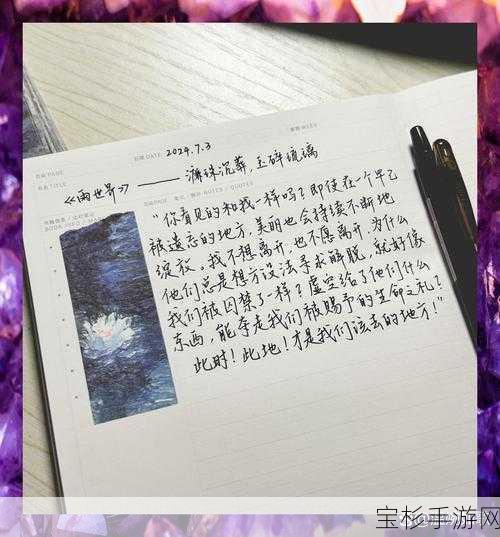 日期 DATE 2024.7.3
《雨世界》——溺珠沉幕，玉碎琉璃
"你看见的和我一样吗？即使在一个早已
被遗忘的地方，美丽也会持续不断地
绽放。我不想离开，也不愿离开，为什么
他们总是想方设法寻求解脱，就好像
我们被囚禁了一样？虚空给了他们什么
东西，能夺走我们被赐予的生命之礼？
此时！此地！才是我们该去的地方！"
宝杉手游网